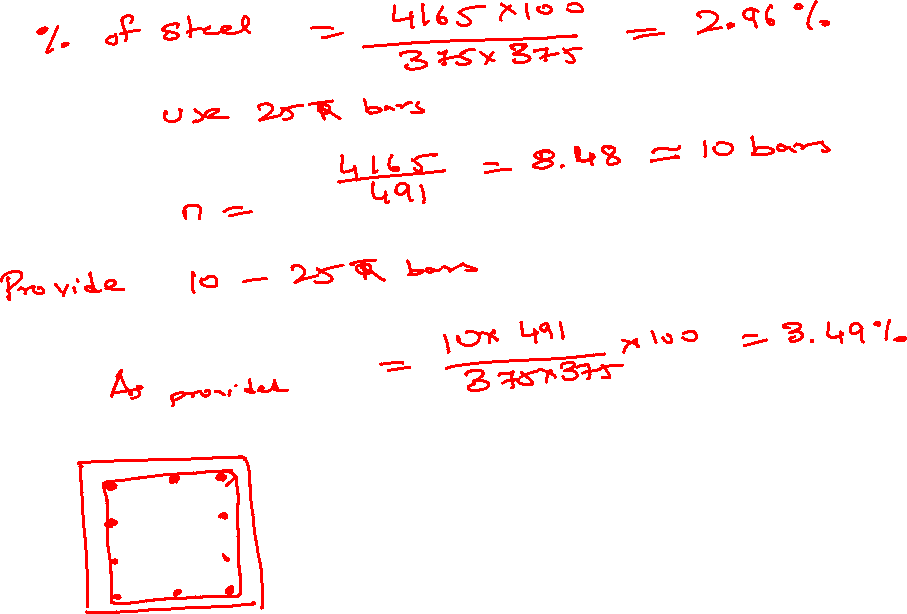 % of steel = 4165 × 100 / 375 × 375 = 2.96 %
use 25 Φ bars
n = 4165 / 491 = 8.48 ≃ 10 bars
Provide 10 - 25 Φ bars
As provided = 10 × 491 / 375 × 375 × 100 = 3.49 %